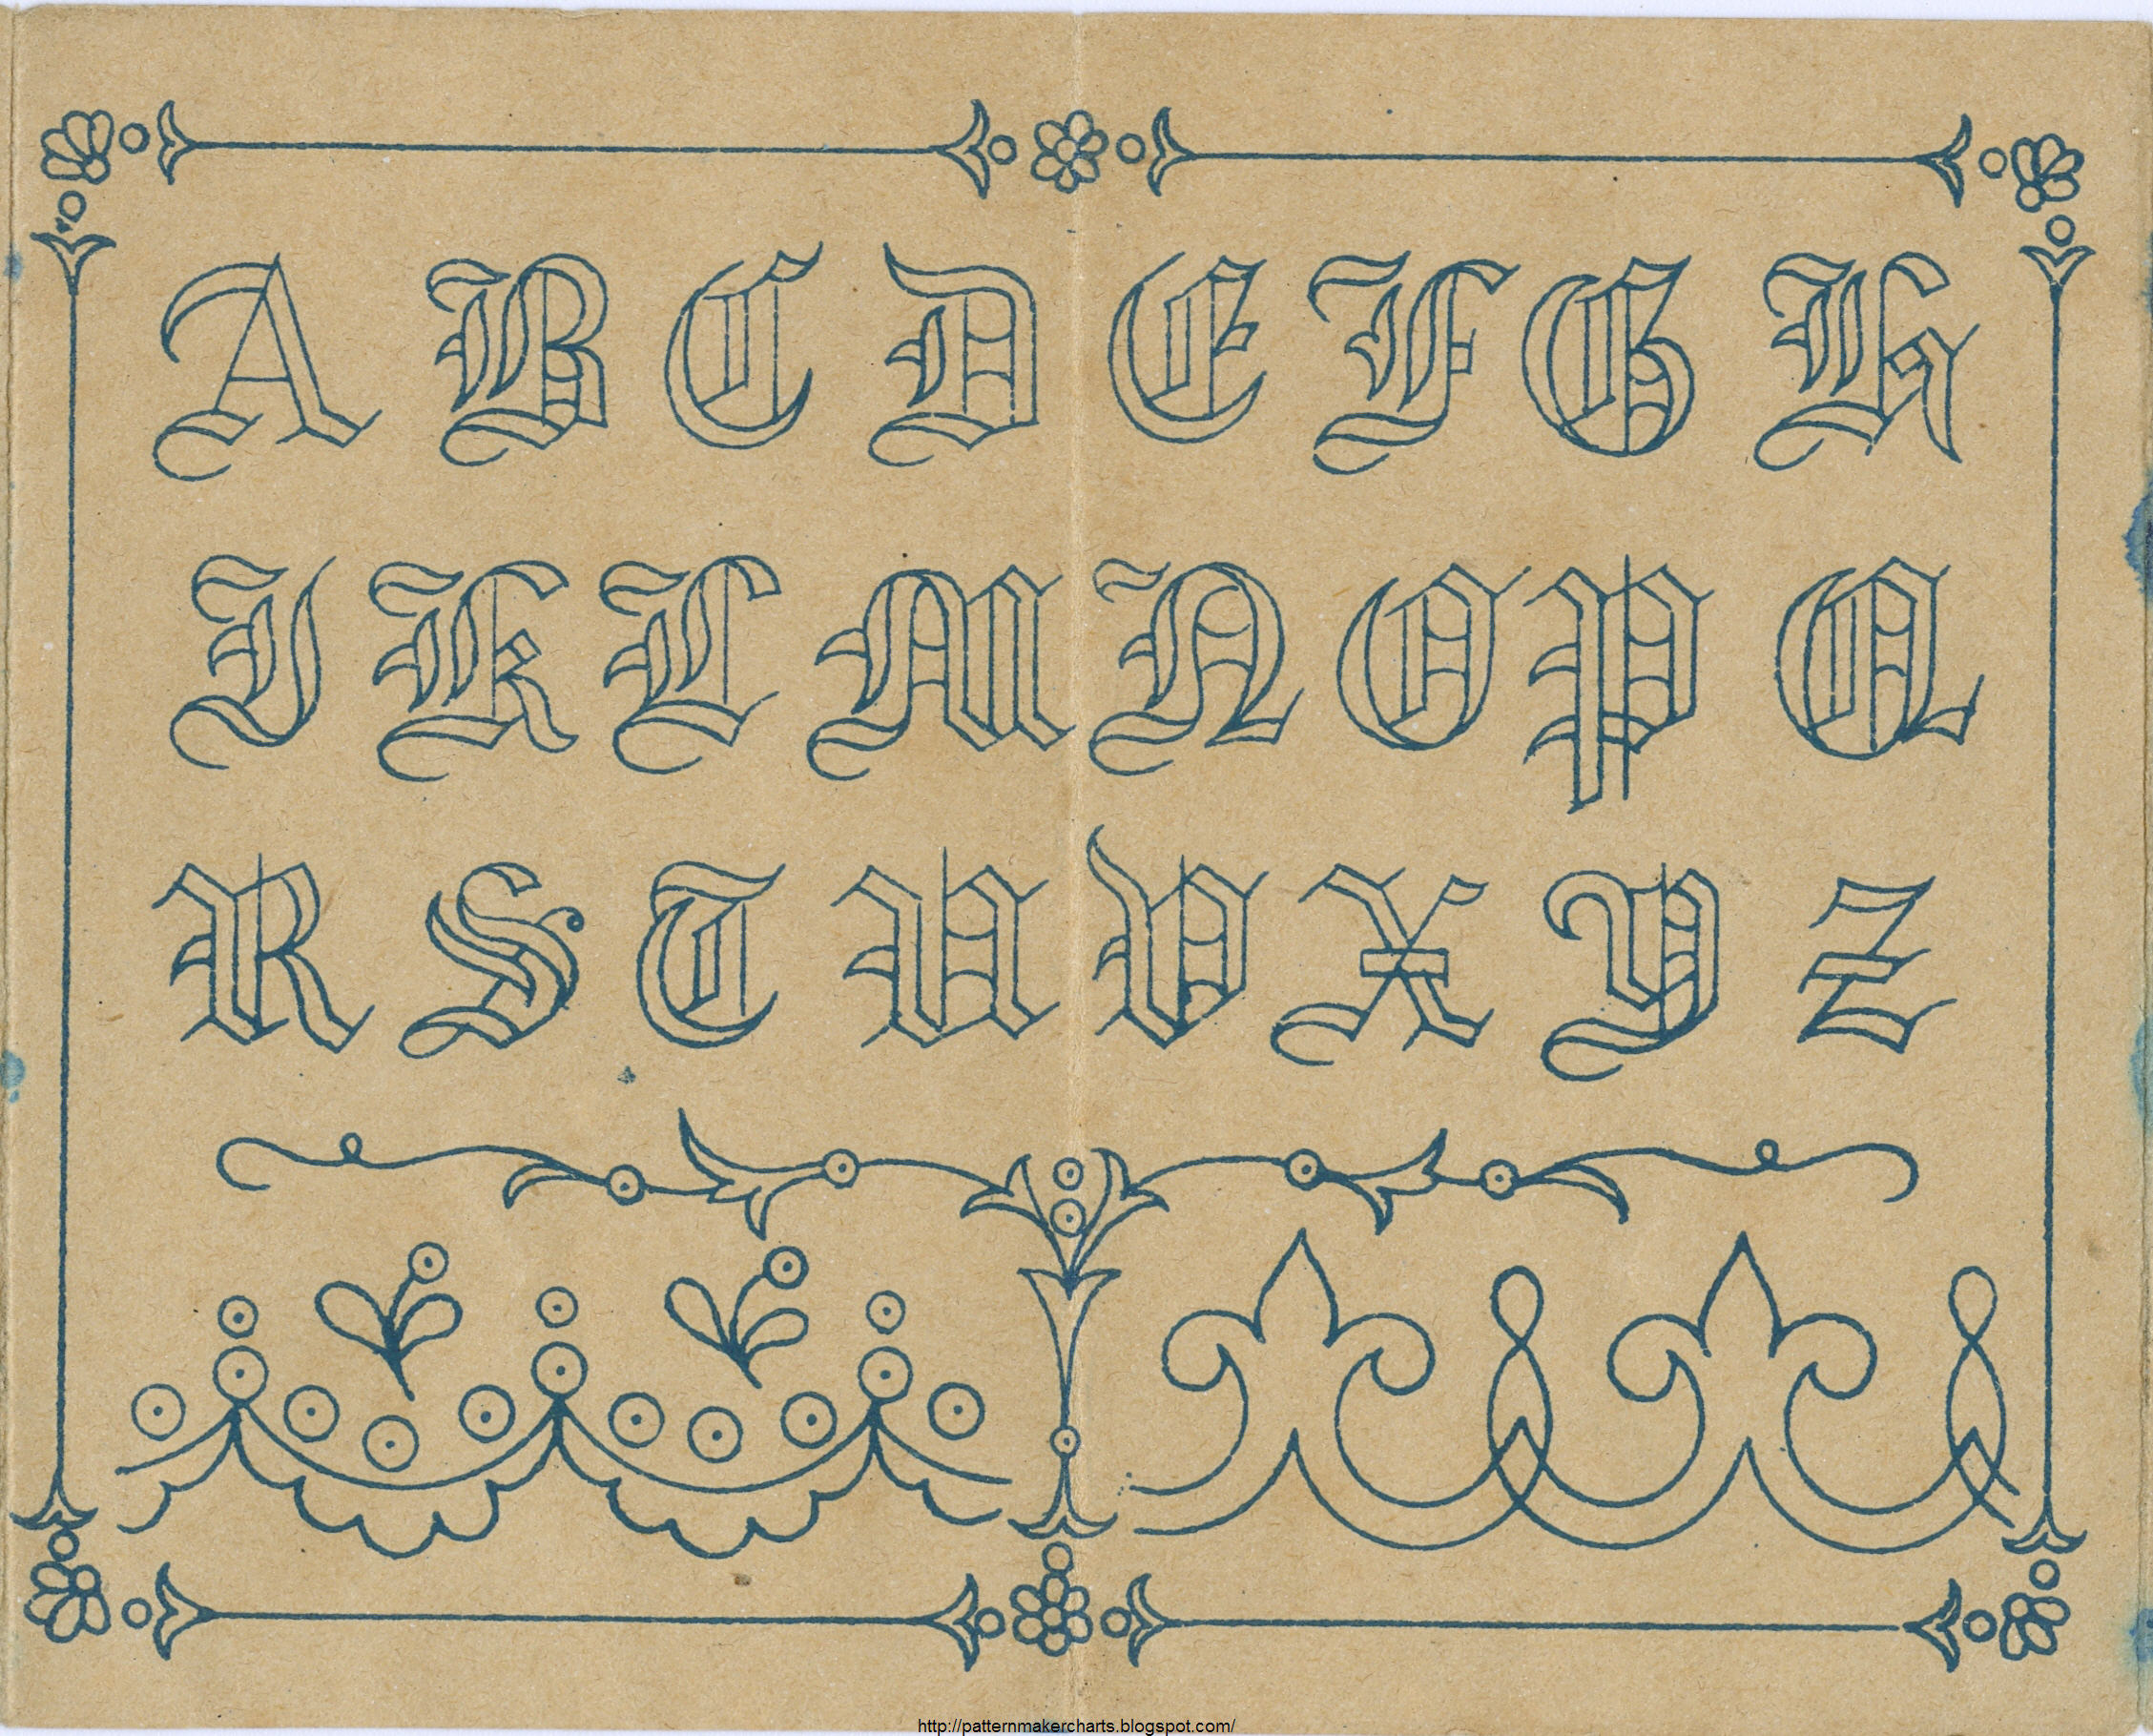 A B C D E F G H
I K L M N O P Q
R S T U V X Y Z
http://patternmakercharts.blogspot.com/